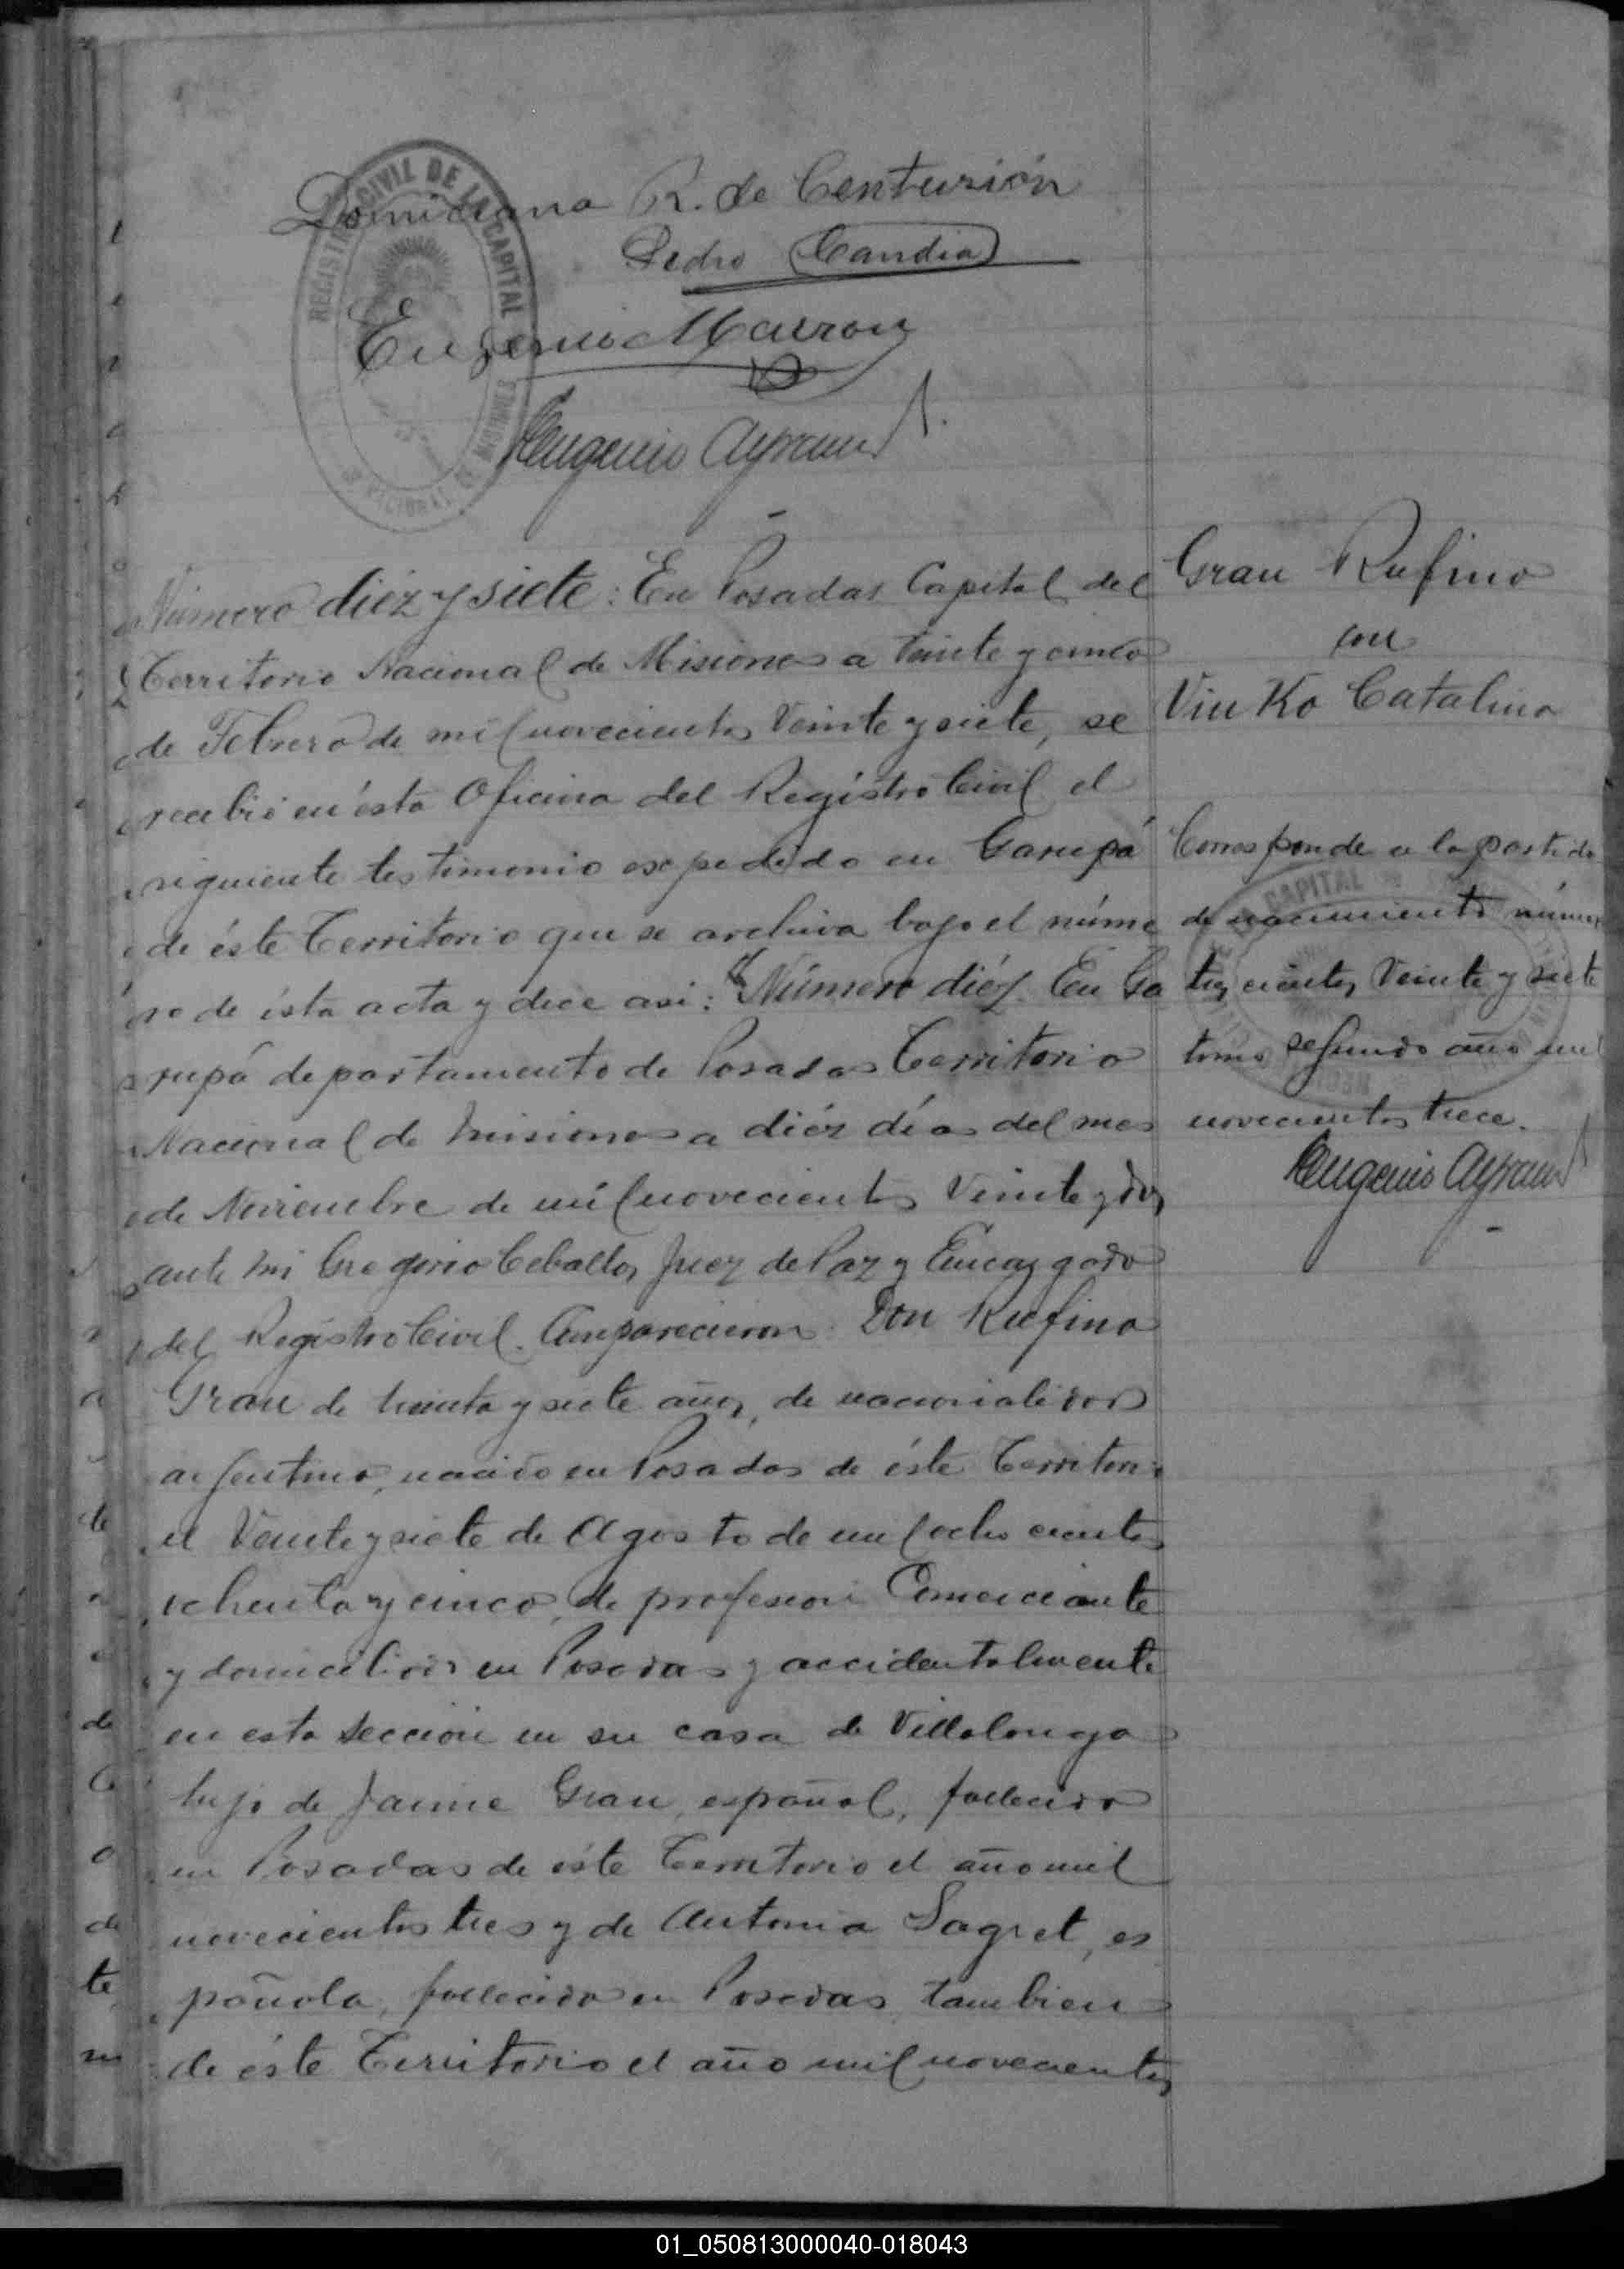 Domiciana R. de Centurión
Pedro Candia
Eugenio Mairon
Eugenio Ayraud
REGISTRO CIVIL DE LA CAPITAL
NACIONAL DE MISIONES
Número diéz y siete: En Posadas Capital del
Territorio Nacional de Misiones a veinte y cinco
de Febrero de mil novecientos veinte y siete, se
recibió en ésta Oficina del Registro Civil el
siguiente testimonio expedido en Garupá
de éste Territorio que se archiva bajo el núme
ro de ésta acta y dice asi: "Número diéz. En Ga
rupá departamento de Posadas Territorio
Nacional de Misiones a diéz días del mes
de Noviembre de mil novecientos Veinte y dos
ante mi Gregorio Ceballos Juez de Paz y Encargado
del Registro Civil. Comparecieron: Don Rufino
Grau de treinta y siete años, de nacionalidad
argentino, nacido en Posadas de éste Territorio
el Veinte y siete de Agosto de mil ochocientos
ochenta y cinco, de profesion Comerciante
y domiciliado en Posadas y accidentalmente
en esta sección en su casa de Villalonga
hijo de Jaime Grau, español, fallecido
en Posadas de éste Territorio el año mil
novecientos tres y de Antonia Sagret, es
pañola, fallecida en Posadas, tambien
de éste Territorio el año mil novecientos
Grau Rufino
con
Vin Ko Catalina
Corresponde a la partida
de nacimiento número
trescientos Veinte y siete
tomo segundo año mil
novecientos trece.
Eugenio Ayraud
01_050813000040-018043